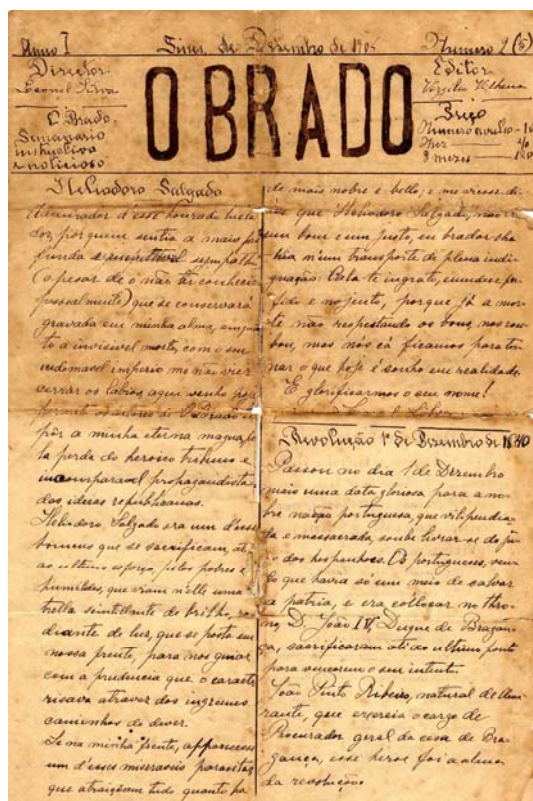 Anno I Sines, de Dezembro de 190 Numero 2 (5)
Director
Leonel Silva
O Brado
Semanario
instructivo
e noticioso
O BRADO
Editor
Vergilio Vilhena
Preço
Numero avulso
Mez
3 mezes
Heliodoro Salgado
Admirador d'esse honrado lucta-
dor, por quem sentia a mais pro
funda e sympathia
(apesar de o não ter conhecido
pessoalmente) que se conservará
gravada em minha alma, emquan
to a invisivel morte, com o seu
indomavel imperio me não vier
cerrar os labios, aqui venho
O Brado ex
pôr a minha eterna magua, pe
la perda do heroico tribuno e
incomparavel propagandista
das ideias republicanas.
Heliodoro Salgado era um d'esses
homens que se sacrificam, até
ao ultimo esforço, pelos pobres e
humildes, que viam n'elle uma
bella scintilante de brilho, ra
diante de luz, que se posta em
nossa frente, para nos guiar
com a prudencia que o caracte
risava atravez dos ingremes
caminhos do dever.
Se na minha frente, apparecesse
um d'esses miseraveis parasitas
que atraiçoam tudo quanto ha
de mais nobre e bello, e me ousasse di-
zer que Heliodoro Salgado, não era
um bom e um justo, eu bradar-lhe
hia n'um transporte de plena indi-
gnação: Cala-te ingrato, immundo e per-
fido e nojento, porque já a mor-
te não respeitando os bons, nos rou-
bou, mas nós cá ficamos para tor-
nar o que hoje é sonho em realidade.
E glorificarmos o seu nome!
Revolução 1º de Dezembro de 1640
Passou no dia 1 de Dezembro
mais uma data gloriosa para a no-
bre nação portugueza, que vilipendia-
da e massacrada, soube livrar-se do ju-
go dos hespanhoes. Os portuguezes, ven-
do que havia só um meio de salvar
a patria, e era collocar no thro-
no, D. João IV, Duque de Bragan-
ça, sacrificaram até ao ultimo ponto
para vencerem o seu intento.
João Pinto Ribeiro, natural de Ama-
rante, que exercia o cargo de
Procurador geral da casa de Bra-
gança, esse heroe foi a alma
da revolução.